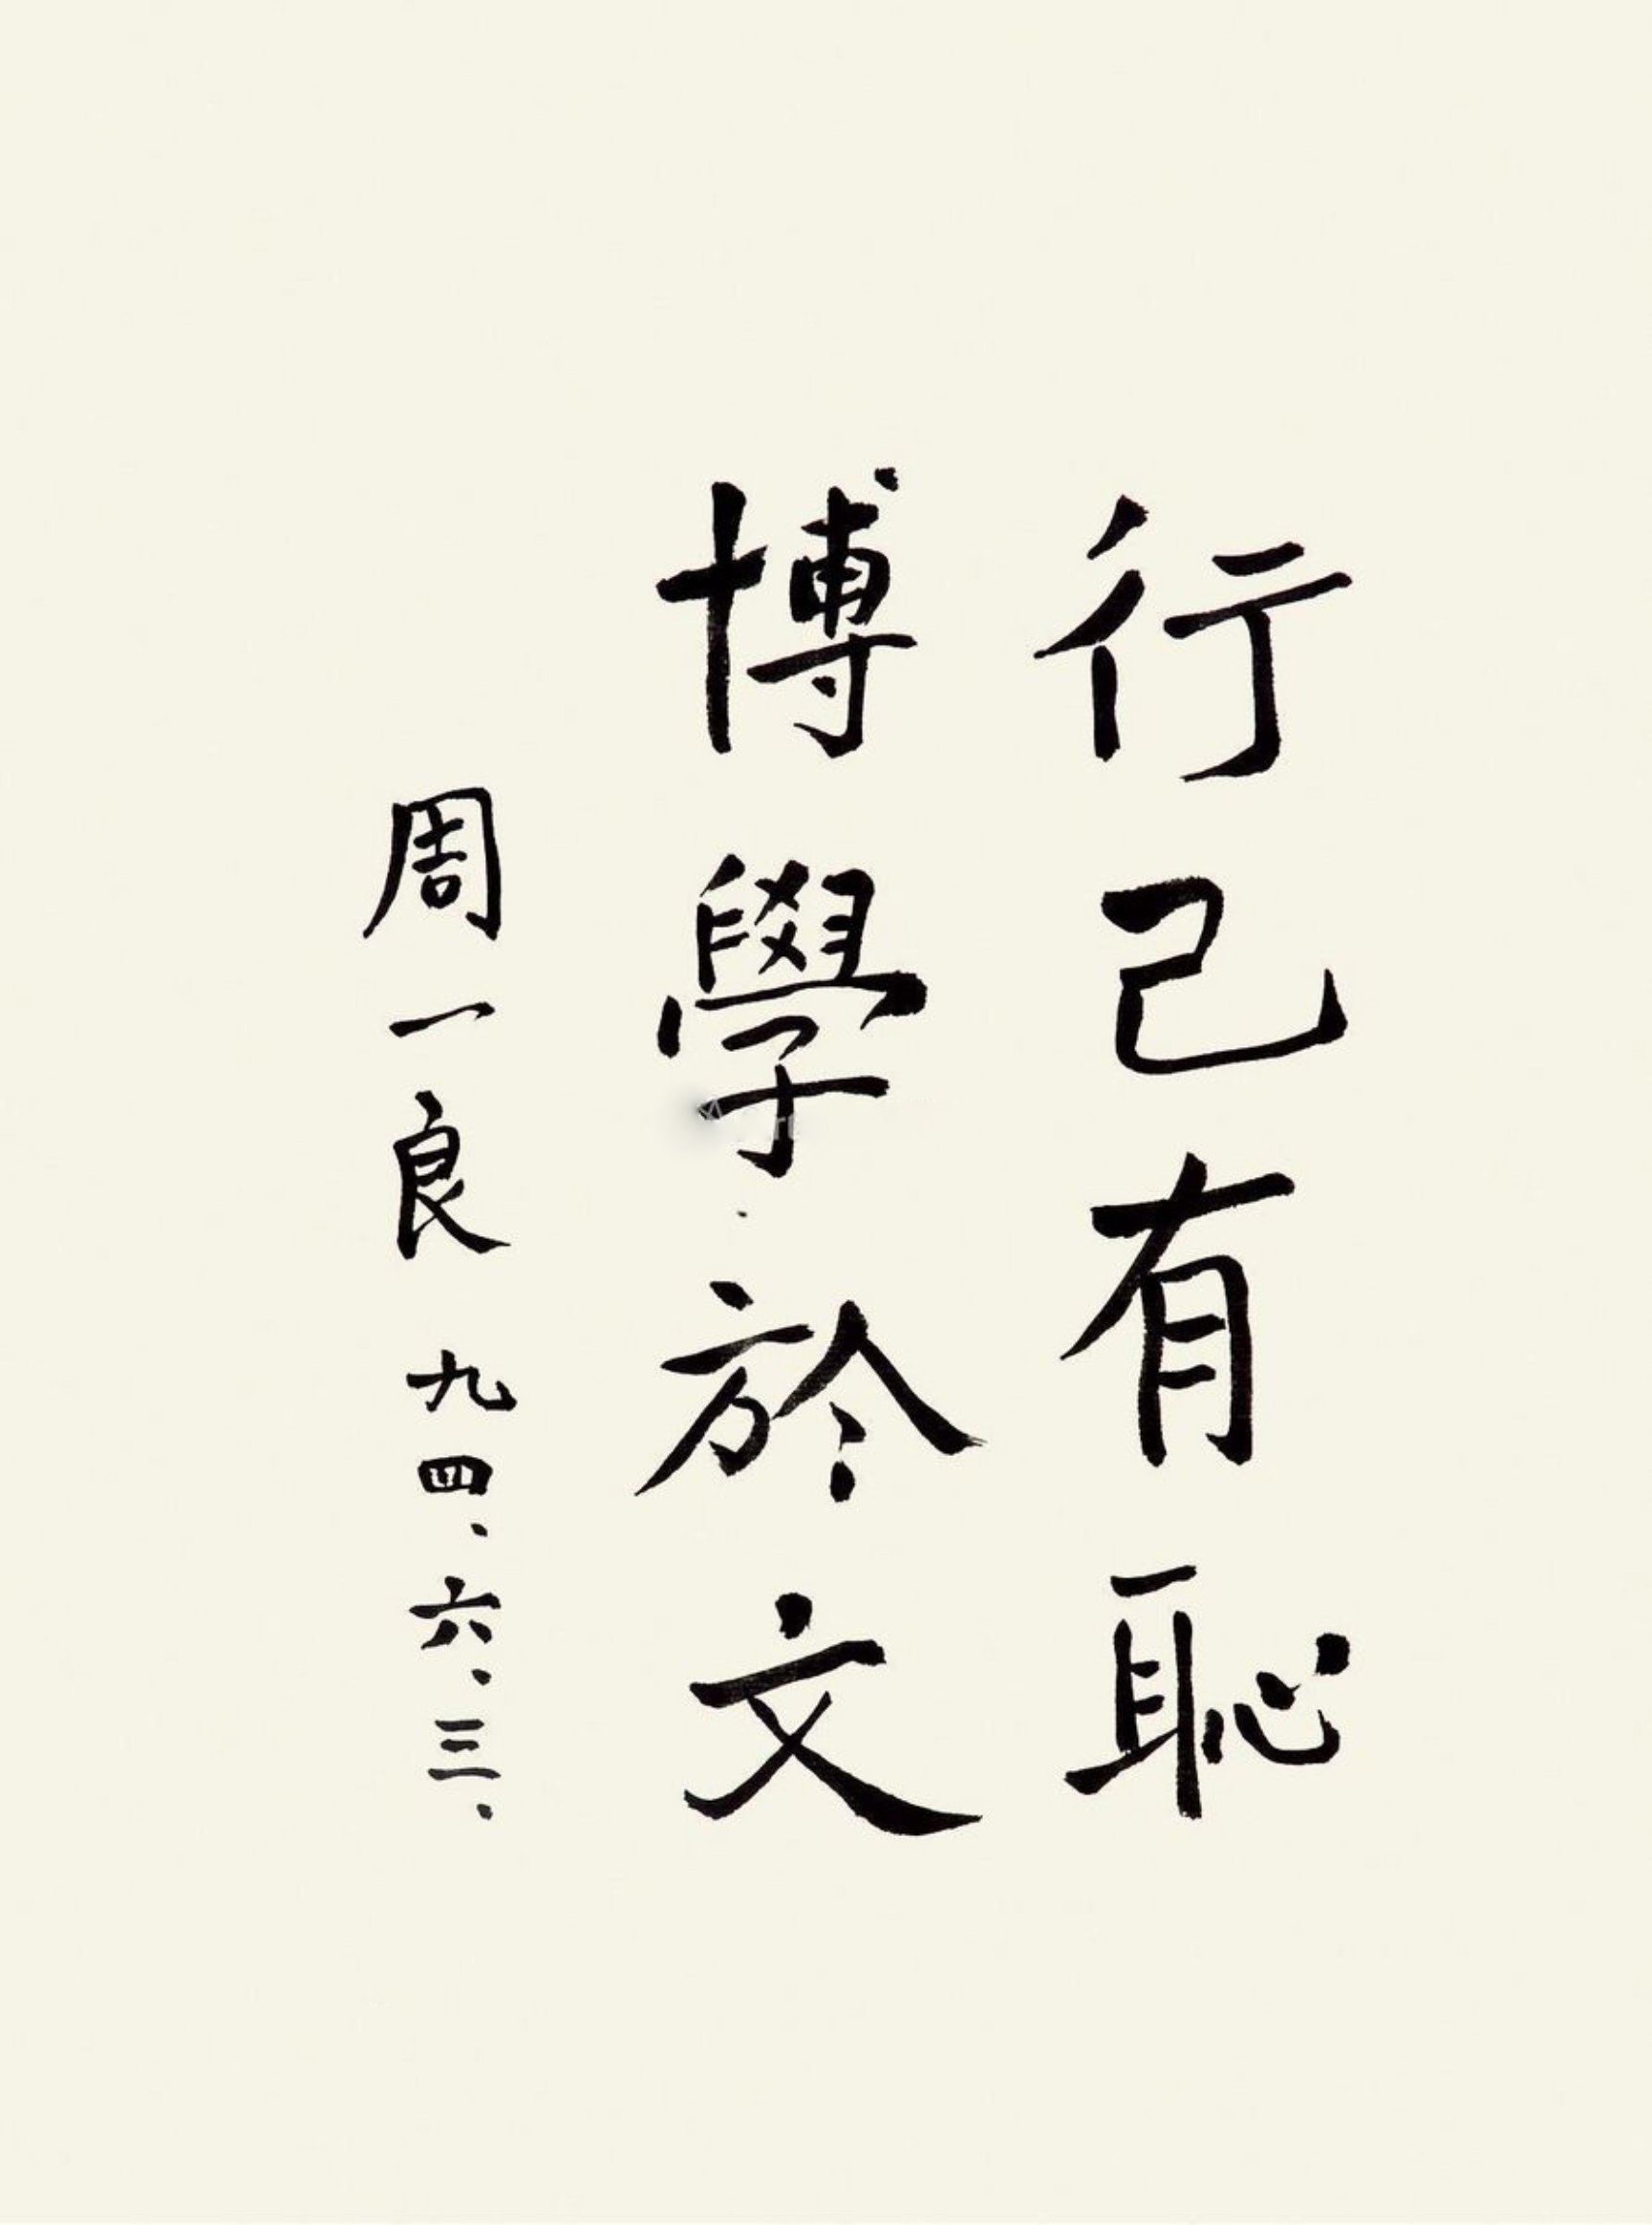 行己有恥
博學於文
周一良 九四、六、三、